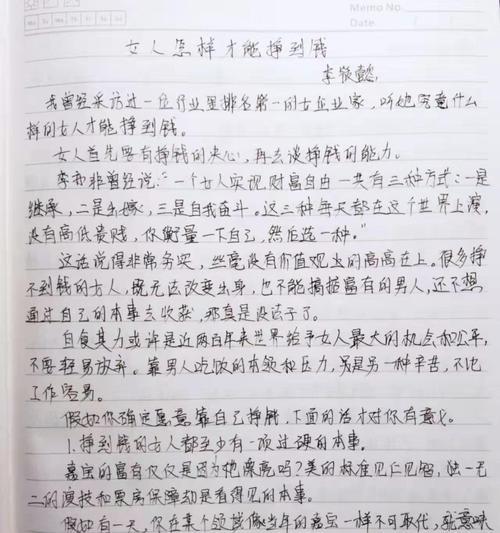 Memo No.
Date
Mo Tu We Th Fr Sa Su
女人怎样才能挣到钱
李筱懿
我曾经采访过一位行业里排名第一的女企业家，听她究竟什么
样的女人才能挣到钱。
女人首先要有挣钱的决心，再去谈挣钱的能力。
李亦非曾经说："一个女人实现财富自由一共有三种方式：一是
继承，二是出嫁，三是自我奋斗。这三种每天都在这个世界上演，
没有高低贵贱，你衡量一下自己，然后选一种。"
这话说得非常务实，丝毫没有价值观上的高高在上。很多挣
不到钱的女人，既无法改变出身，也不能搞掂富有的男人，还不想
通过自己的本事去收获，那真是没法子了。
自食其力或许是近两百年来世界给予女人最大的机会和公平，
不要轻易放弃。靠男人吃饭的本领和压力，是另一种辛苦，不比
工作容易。
假如你确定愿意靠自己挣钱，下面的话才对你有意义。
1.挣到钱的女人都至少有一项过硬的本事。
嘉宝的富有仅仅是因为她漂亮吗？美的标准见仁见智，独一无
二的演技和票房保障却是看得见的本事。
假如有一天，你在某个领域像当年的嘉宝一样不可取代，就意味